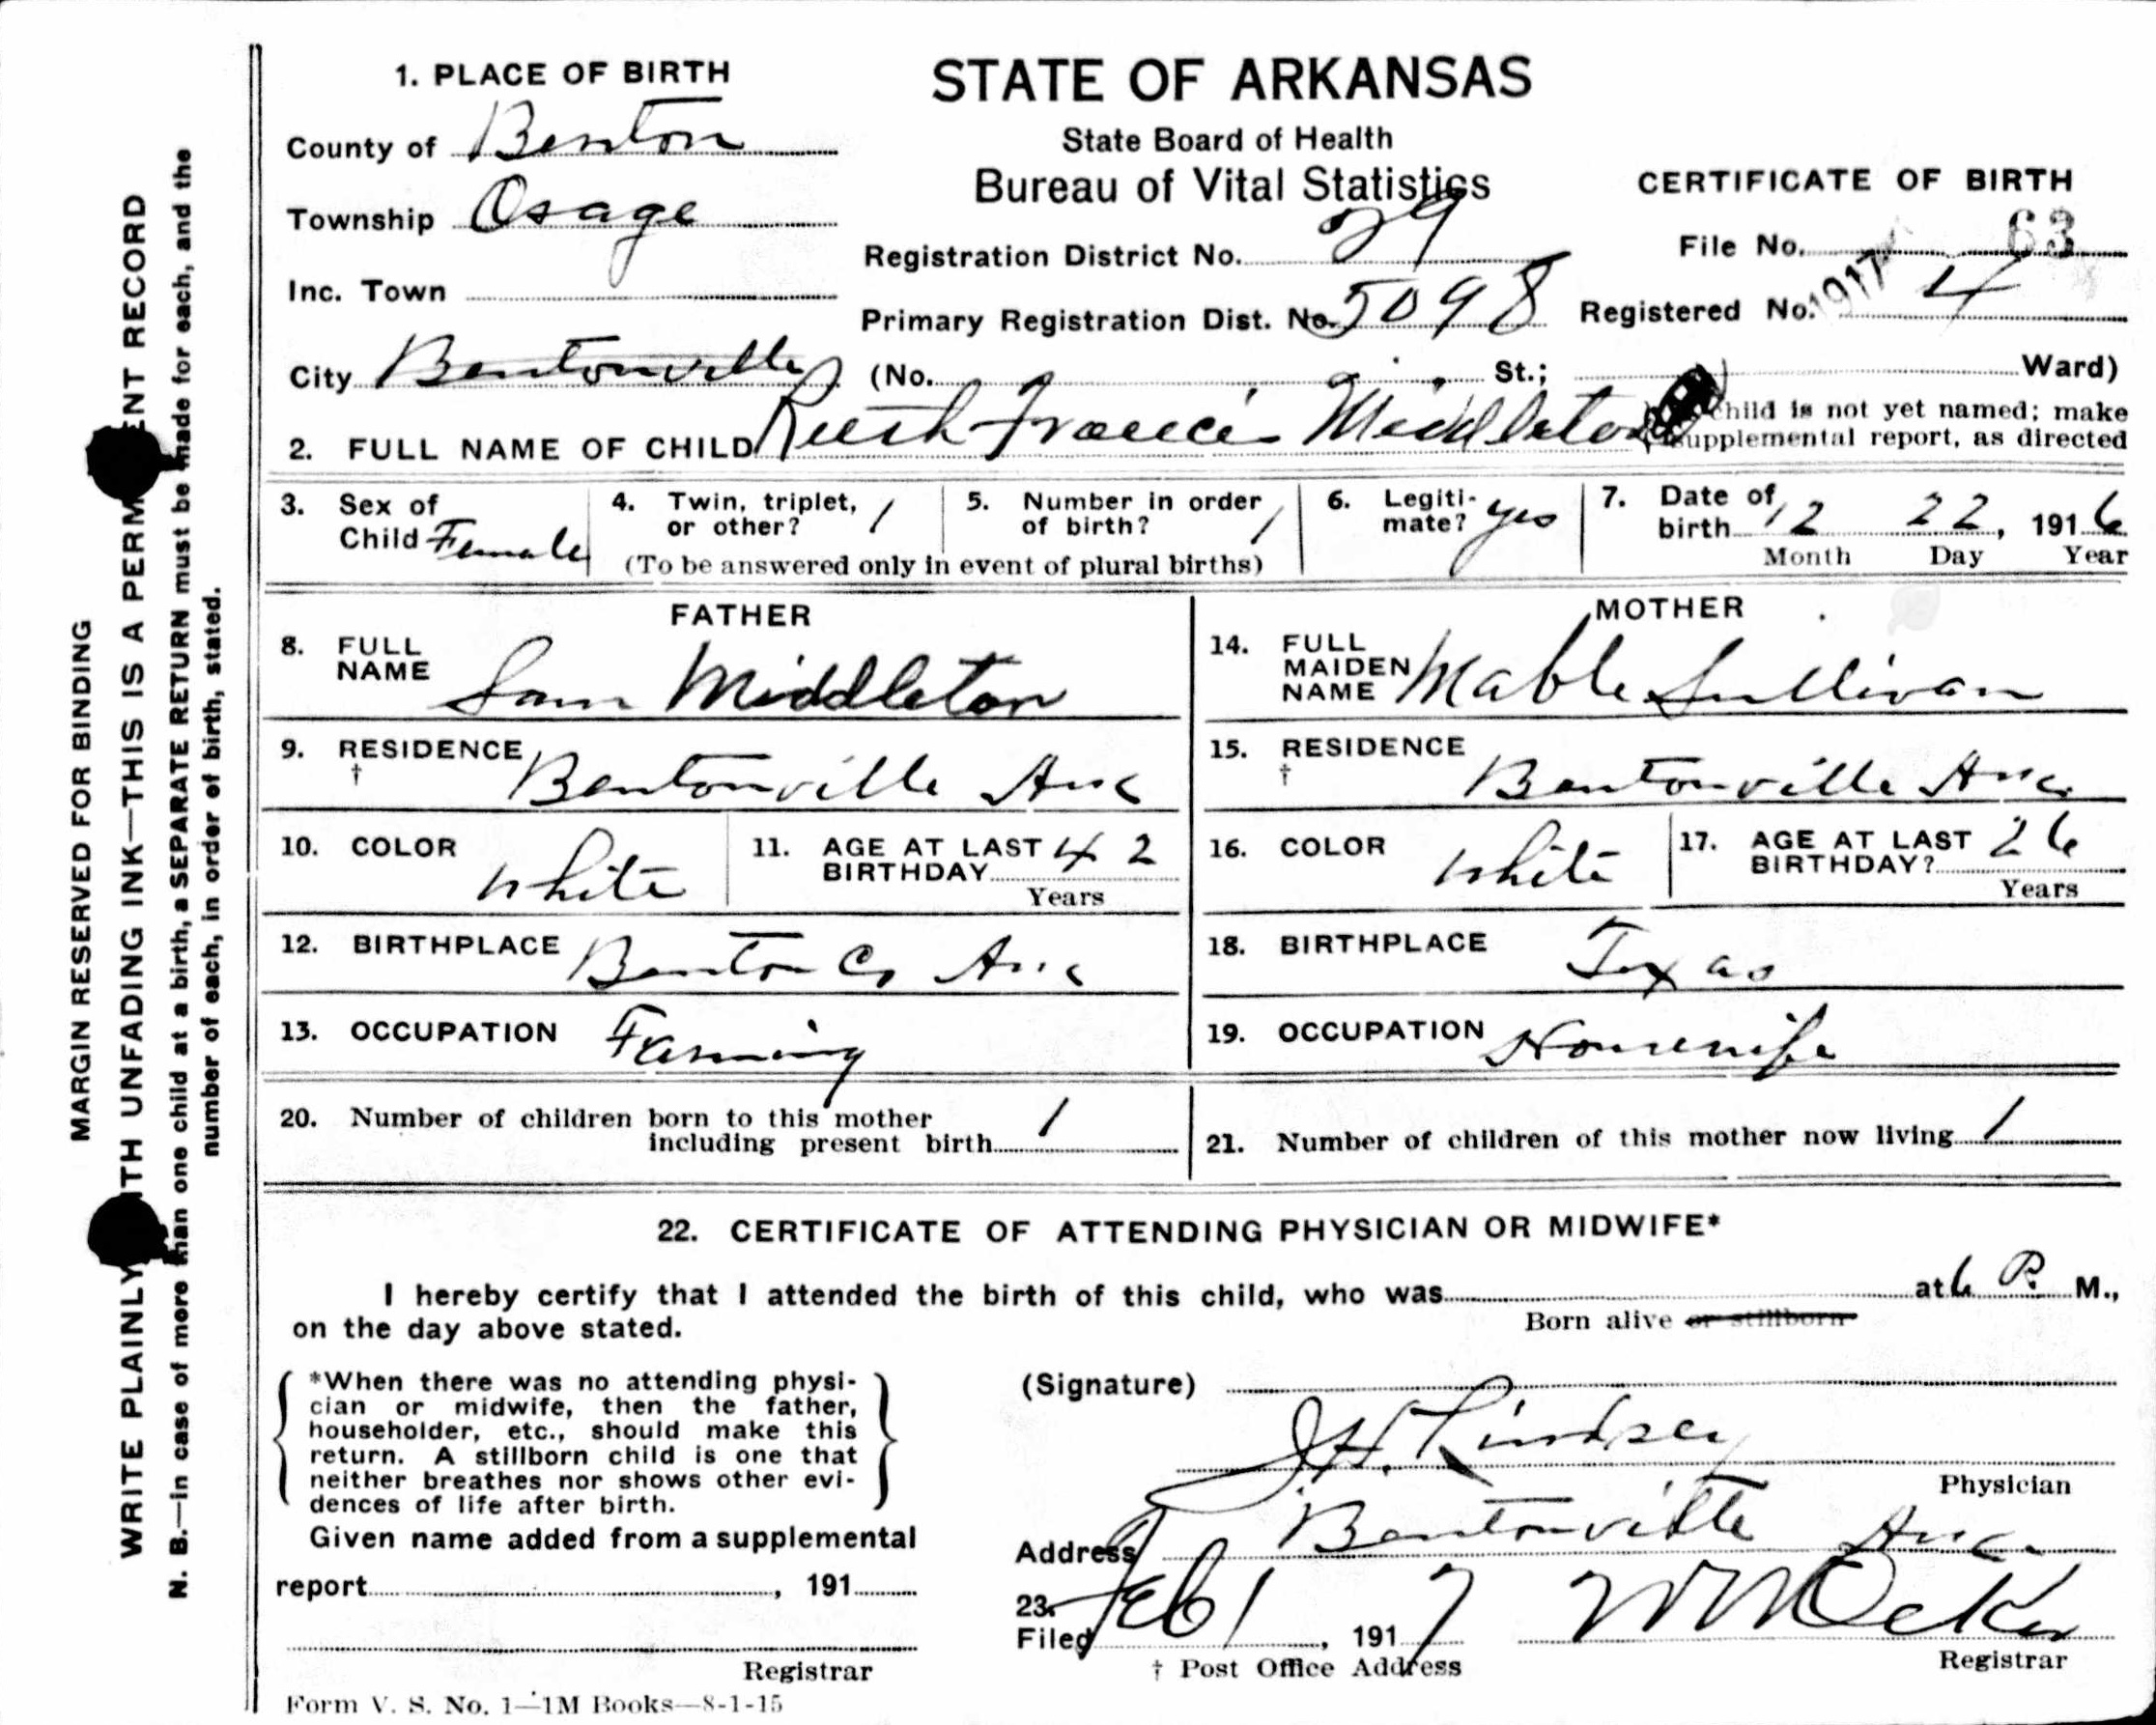 MARGIN RESERVED FOR BINDING
WRITE PLAINLY WITH UNFADING INK—THIS IS A PERMANENT RECORD
N. B.—In case of more than one child at a birth, a SEPARATE RETURN must be made for each, and the
number of each, in order of birth, stated.
1. PLACE OF BIRTH
County of Benton
Township Osage
Inc. Town
City Bentonville
STATE OF ARKANSAS
State Board of Health
Bureau of Vital Statistics
Registration District No. 29
Primary Registration Dist. No. 5098
CERTIFICATE OF BIRTH
File No. 63
1917
Registered No. 4
(No. St.; Ward)
2. FULL NAME OF CHILD Ruth Francis Middleton
child is not yet named; make
supplemental report, as directed
3. Sex of Child Female
4. Twin, triplet, or other? 1
5. Number in order of birth? 1
(To be answered only in event of plural births)
6. Legitimate? yes
7. Date of birth 12 22, 1916
Month Day Year
FATHER
8. FULL NAME Sam Middleton
9. RESIDENCE † Bentonville Ark
10. COLOR white
11. AGE AT LAST BIRTHDAY 42
Years
12. BIRTHPLACE Benton Co Ark
13. OCCUPATION Farming
MOTHER
14. FULL MAIDEN NAME Mable Sullivan
15. RESIDENCE † Bentonville Ark
16. COLOR white
17. AGE AT LAST BIRTHDAY? 26
Years
18. BIRTHPLACE Texas
19. OCCUPATION Housewife
20. Number of children born to this mother
including present birth 1
21. Number of children of this mother now living 1
22. CERTIFICATE OF ATTENDING PHYSICIAN OR MIDWIFE*
I hereby certify that I attended the birth of this child, who was at 6 P. M.,
Born alive or stillborn
on the day above stated.
*When there was no attending physi-
cian or midwife, then the father,
householder, etc., should make this
return. A stillborn child is one that
neither breathes nor shows other evi-
dences of life after birth.
Given name added from a supplemental
report , 191
Registrar
Form V. S. No. 1—1M Books—8-1-15
(Signature)
J.H. Lindsey
Physician
Address Bentonville Ark.
23. Filed Feb 1, 1917
Registrar
† Post Office Address